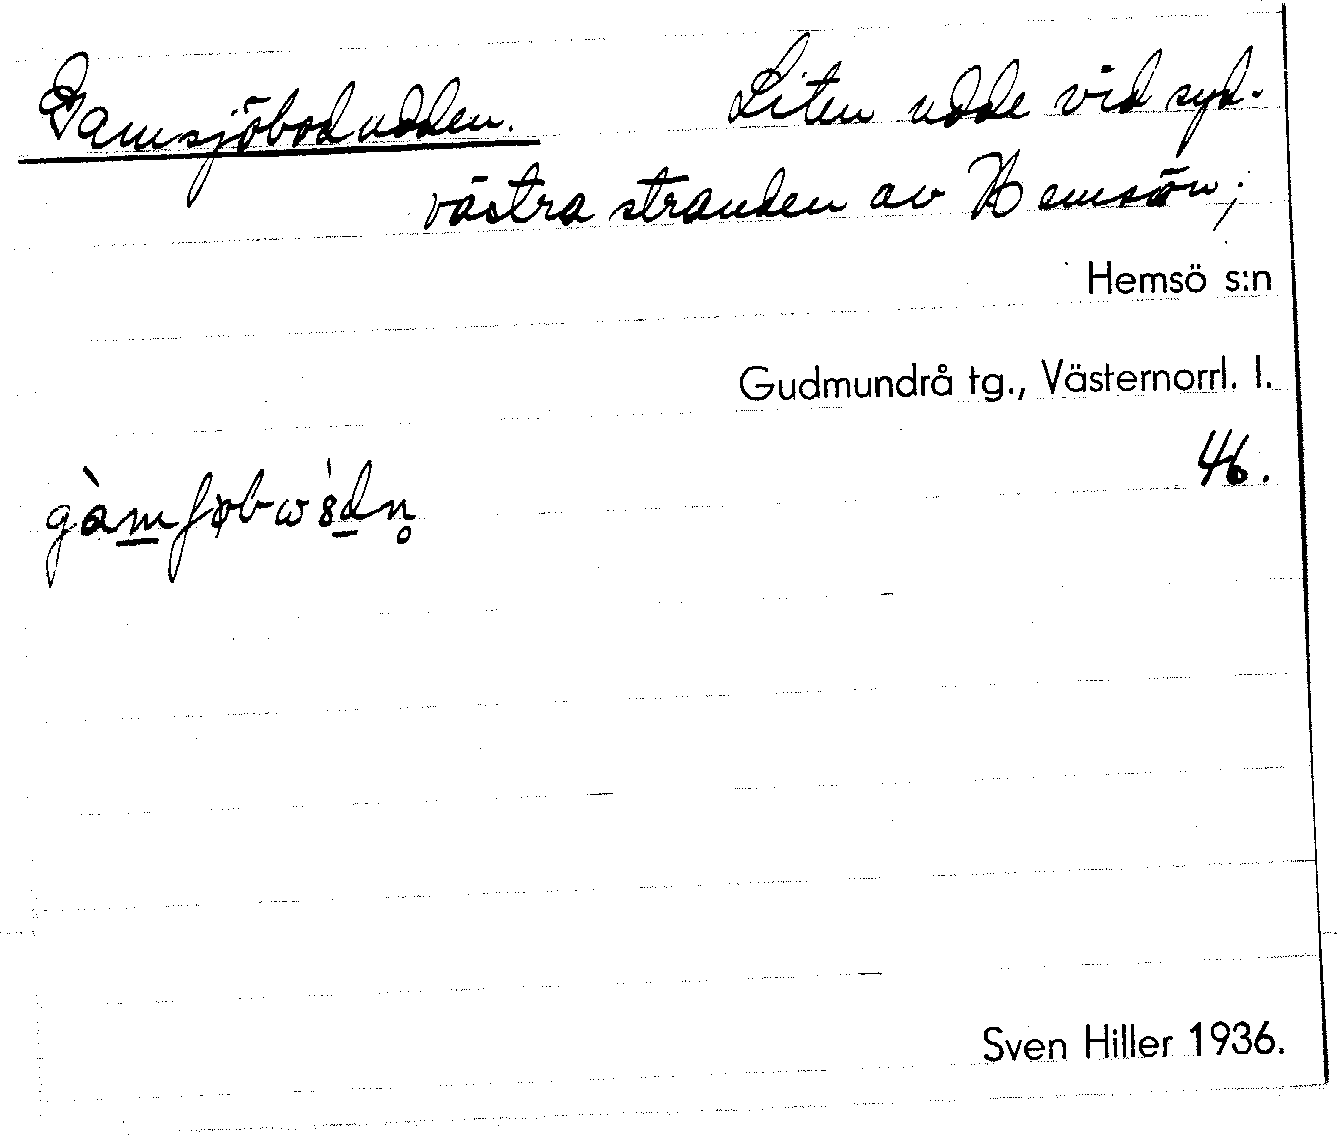 Gamsjöbodudden. Liten udde vid syd-
västra stranden av Hemsön;
Hemsö s:n
Gudmundrå tg., Västernorrl. l.
46.
Sven Hiller 1936.